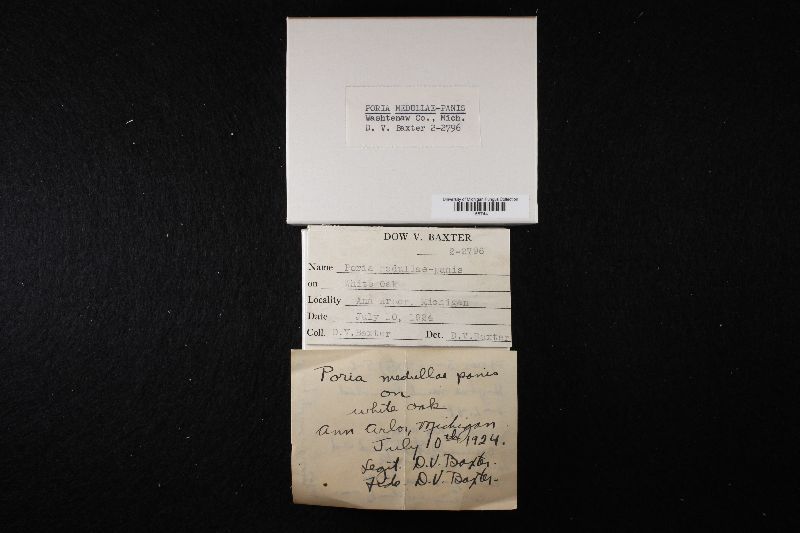 PORIA MEDULLAE-PANIS
Washtenaw Co., Mich.
D. V. Baxter 2-2796
University of Michigan Fungus Collection
DOW V. BAXTER
2-2796
Name Poria medullae-panis
on White Oak
Locality Ann Arbor, Michigan
Date July 10, 1924
Coll. D.V.Baxter Det. D.V.Baxter
Poria medullae panis
on
white oak
Ann Arbor, Michigan.
July 10th, 1924.
Legit. D.V. Baxter.
Fide D.V. Baxter.